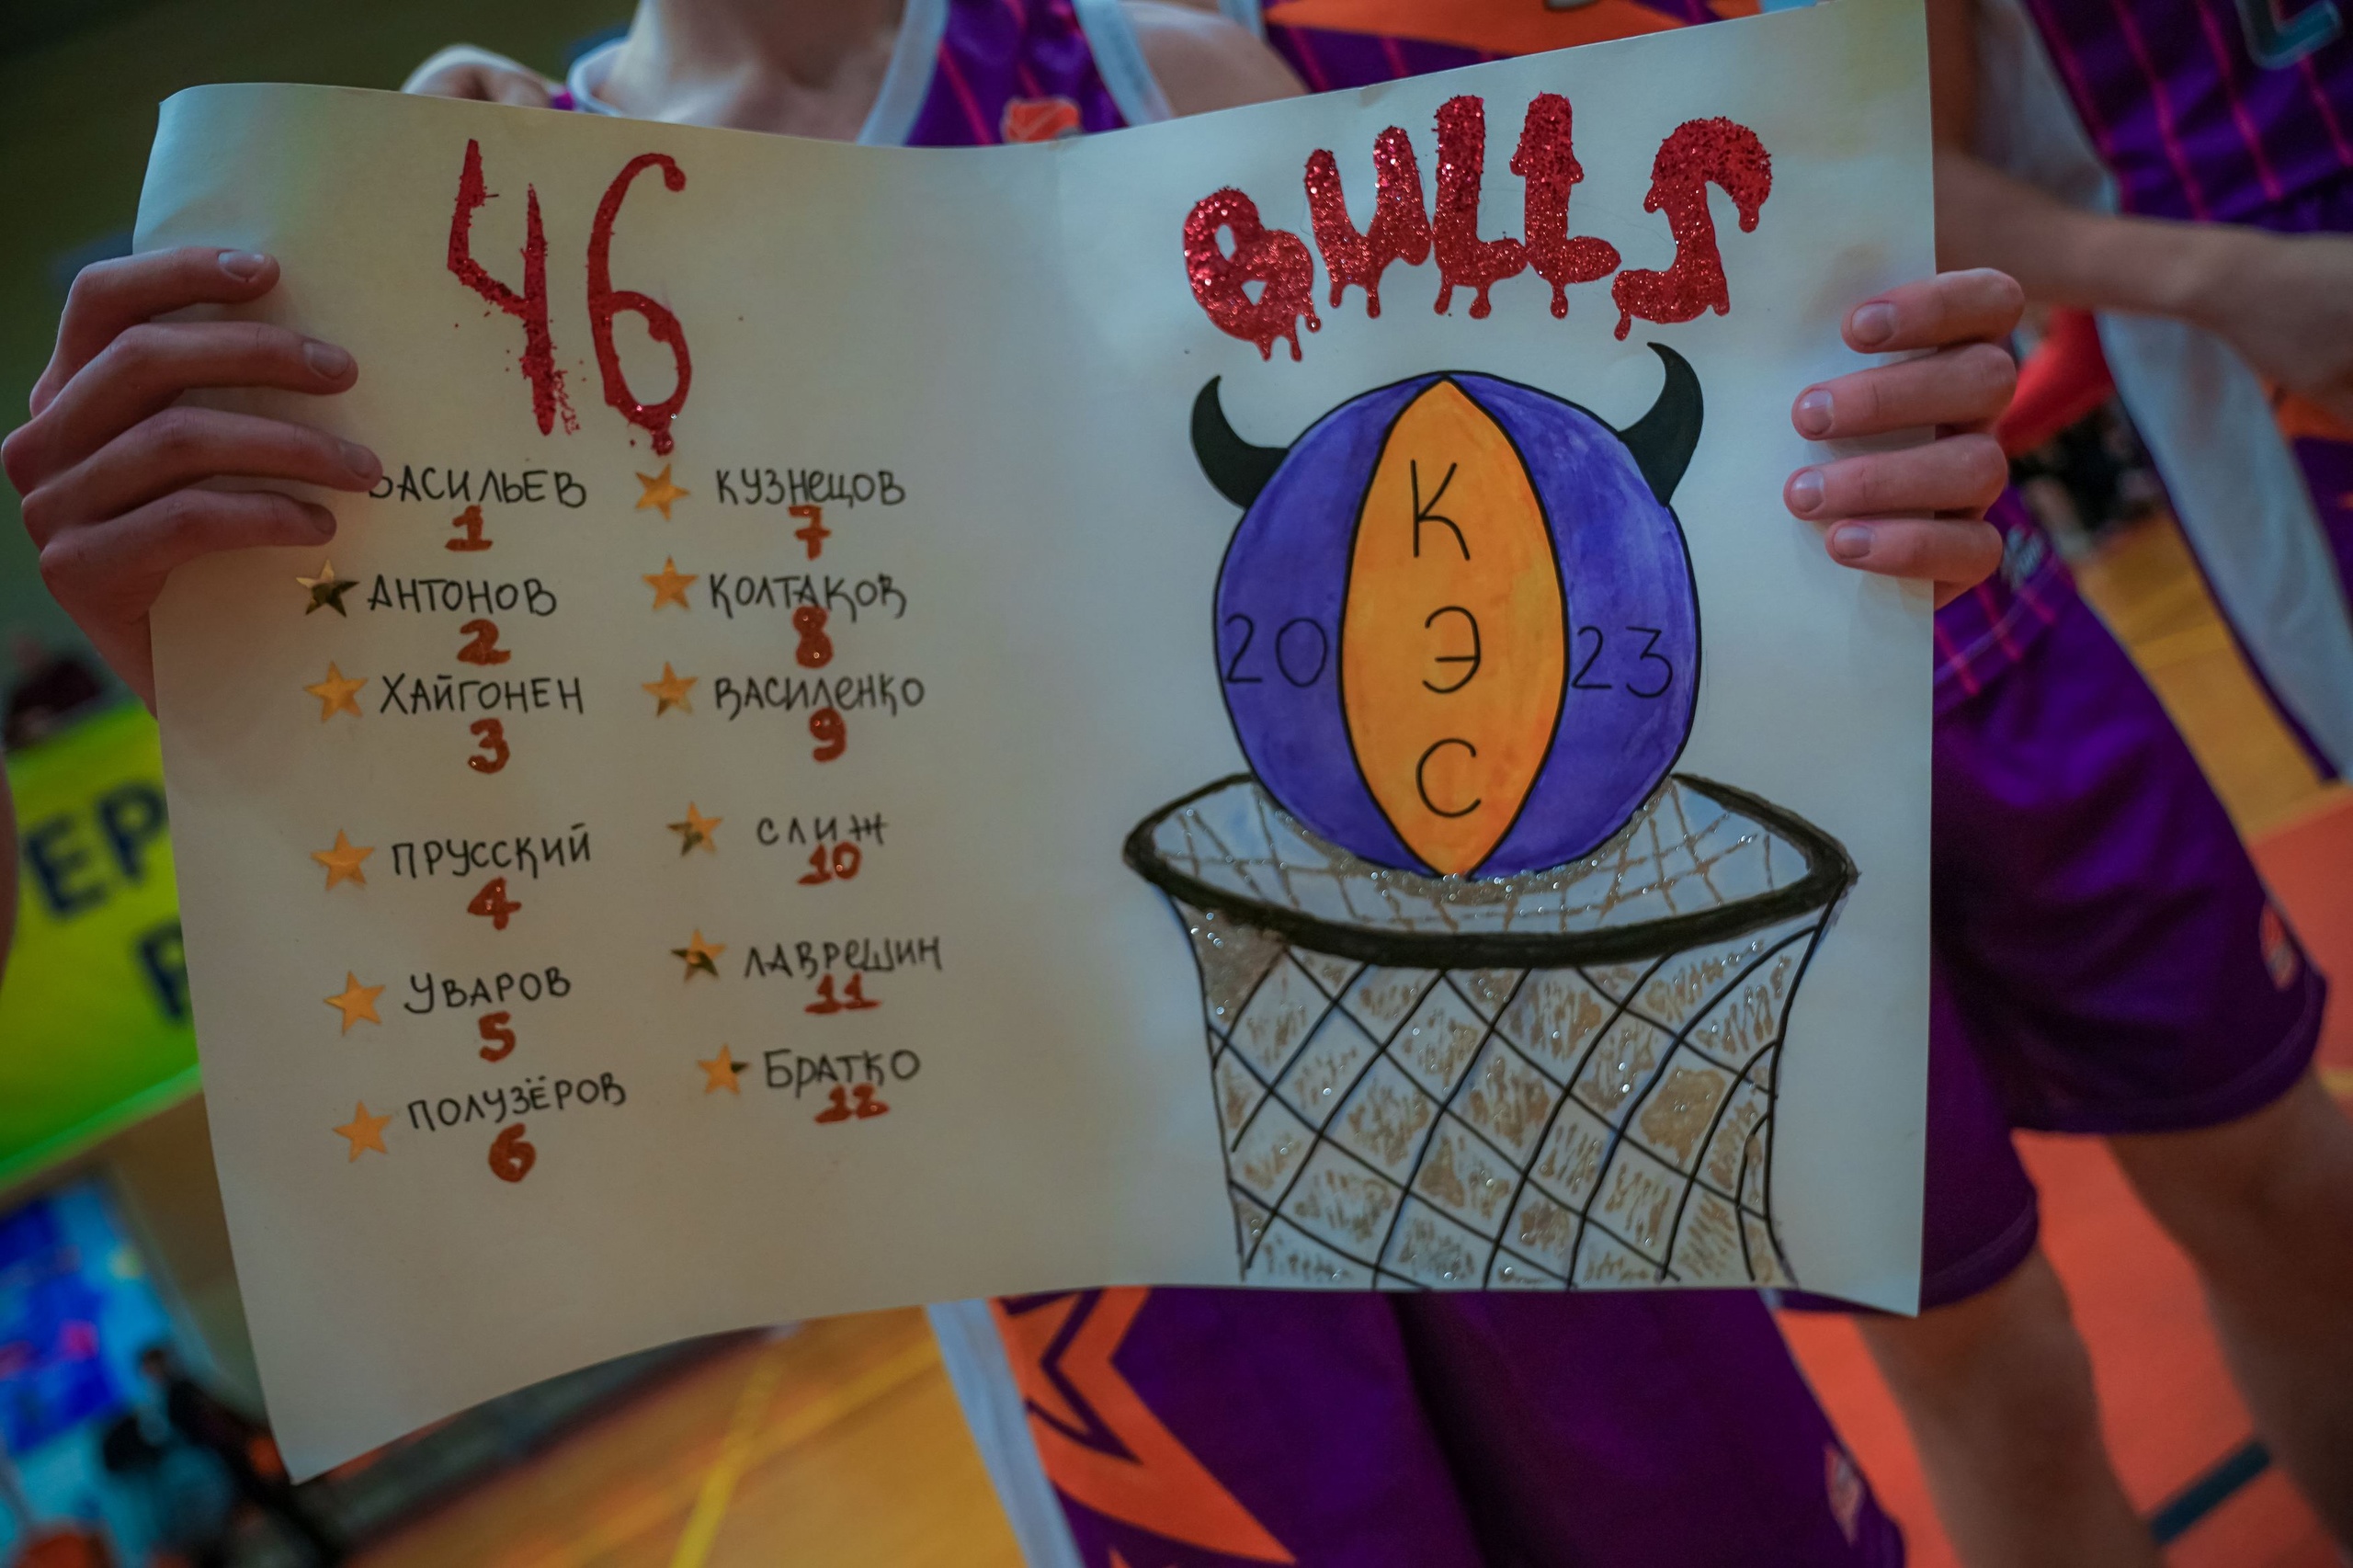 46
ВАСИЛЬЕВ
1
АНТОНОВ
2
ХАЙГОНЕН
3
ПРУССКИЙ
4
УВАРОВ
5
ПОЛУЗЁРОВ
6
КУЗНЕЦОВ
7
КОЛТАКОВ
8
ВАСИЛЕНКО
9
СЛИЖ
10
ЛАВРЕШИН
11
БРАТКО
12
BULLS
К
20 Э 23
С